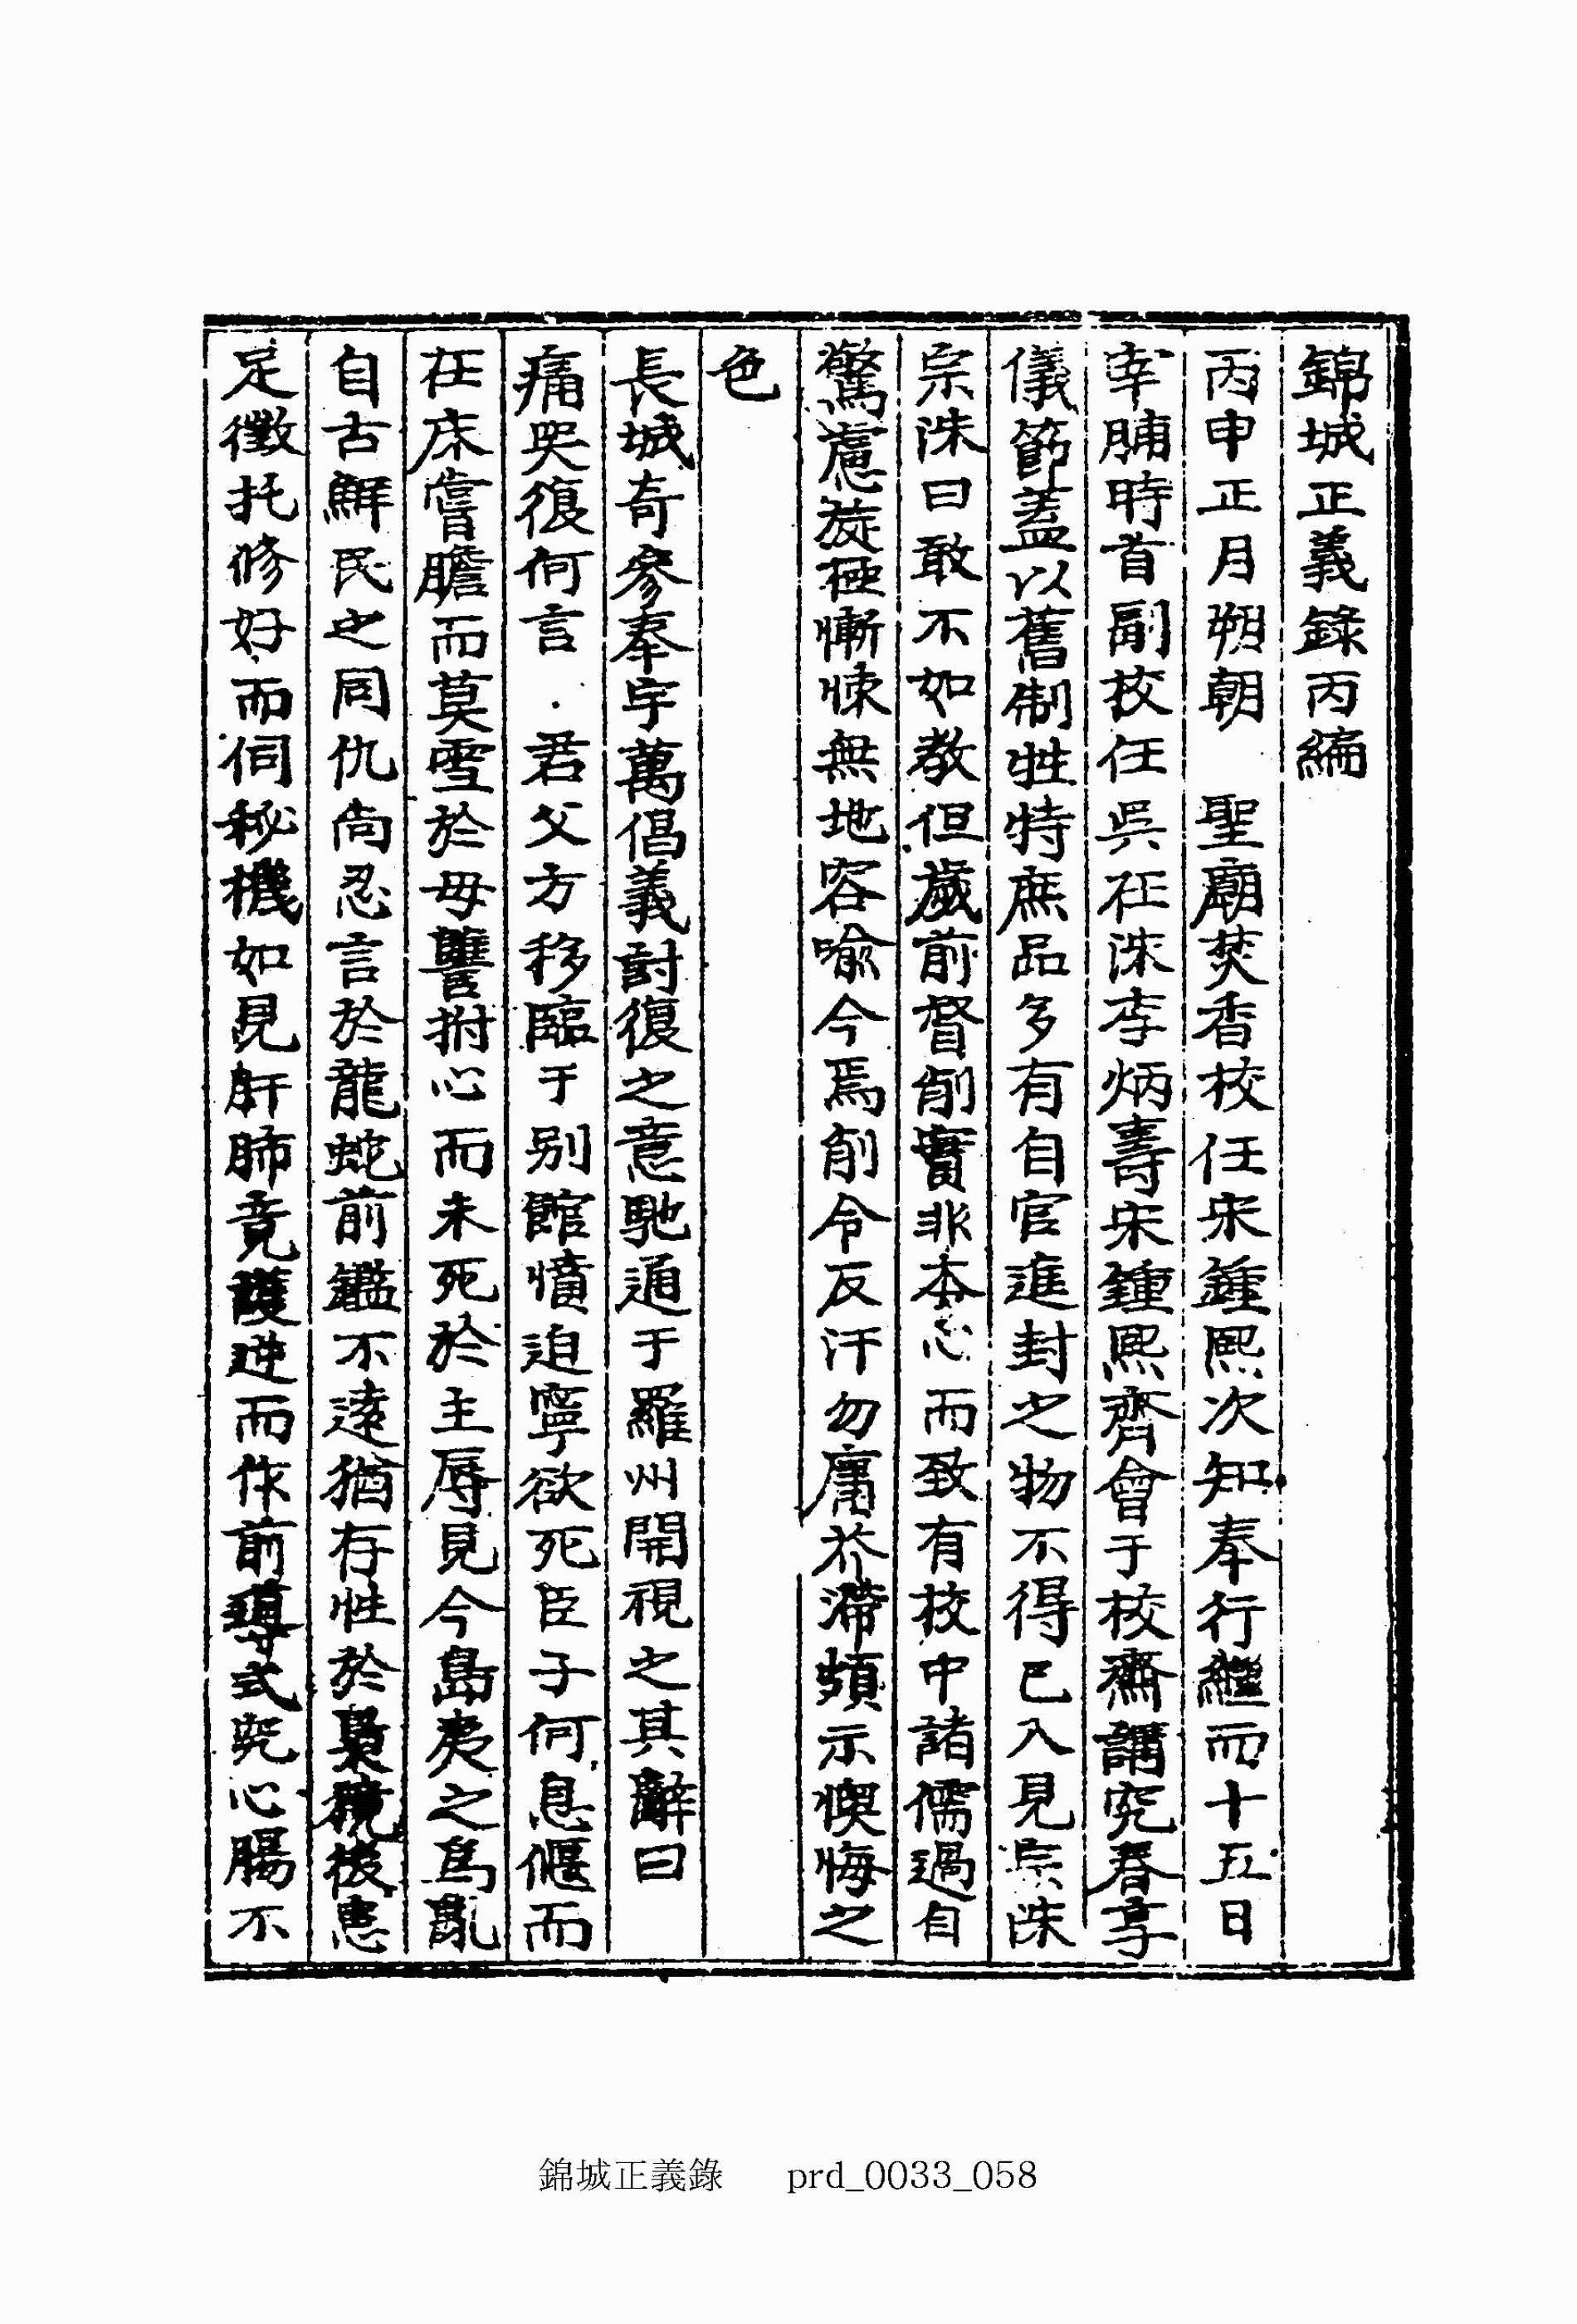 錦城正義錄丙編
丙申正月朔朝 聖廟焚香校任宋鍾熙次知奉行繼而十五日
宰脯時首副校任吳在洙李炳壽宋鍾熙齊會于校齋講究春享
儀節蓋以舊制牲特庶品多有自官進封之物不得已入見宗洙
宗洙曰敢不如教但歲前督削實非本心而致有校中諸儒過自
驚慮旋極慚悚無地容喩今焉削令反汗勿庸芥滯頻示懊悔之
色
長城奇參奉宇萬倡義討復之意馳通于羅州開視之其辭曰
痛哭復何言 君父方移臨于別館憤迫寧欲死臣子何息偃而
在床嘗膽而莫雪於母讐拊心而未死於主辱見今島夷之爲亂
自古鮮民之同仇尙忍言於龍蛇前鑑不遠猶存性於梟獍後患
足徵托修好而伺秘機如見肝肺竟護逆而作前導式究心腸不
錦城正義錄 prd_0033_058